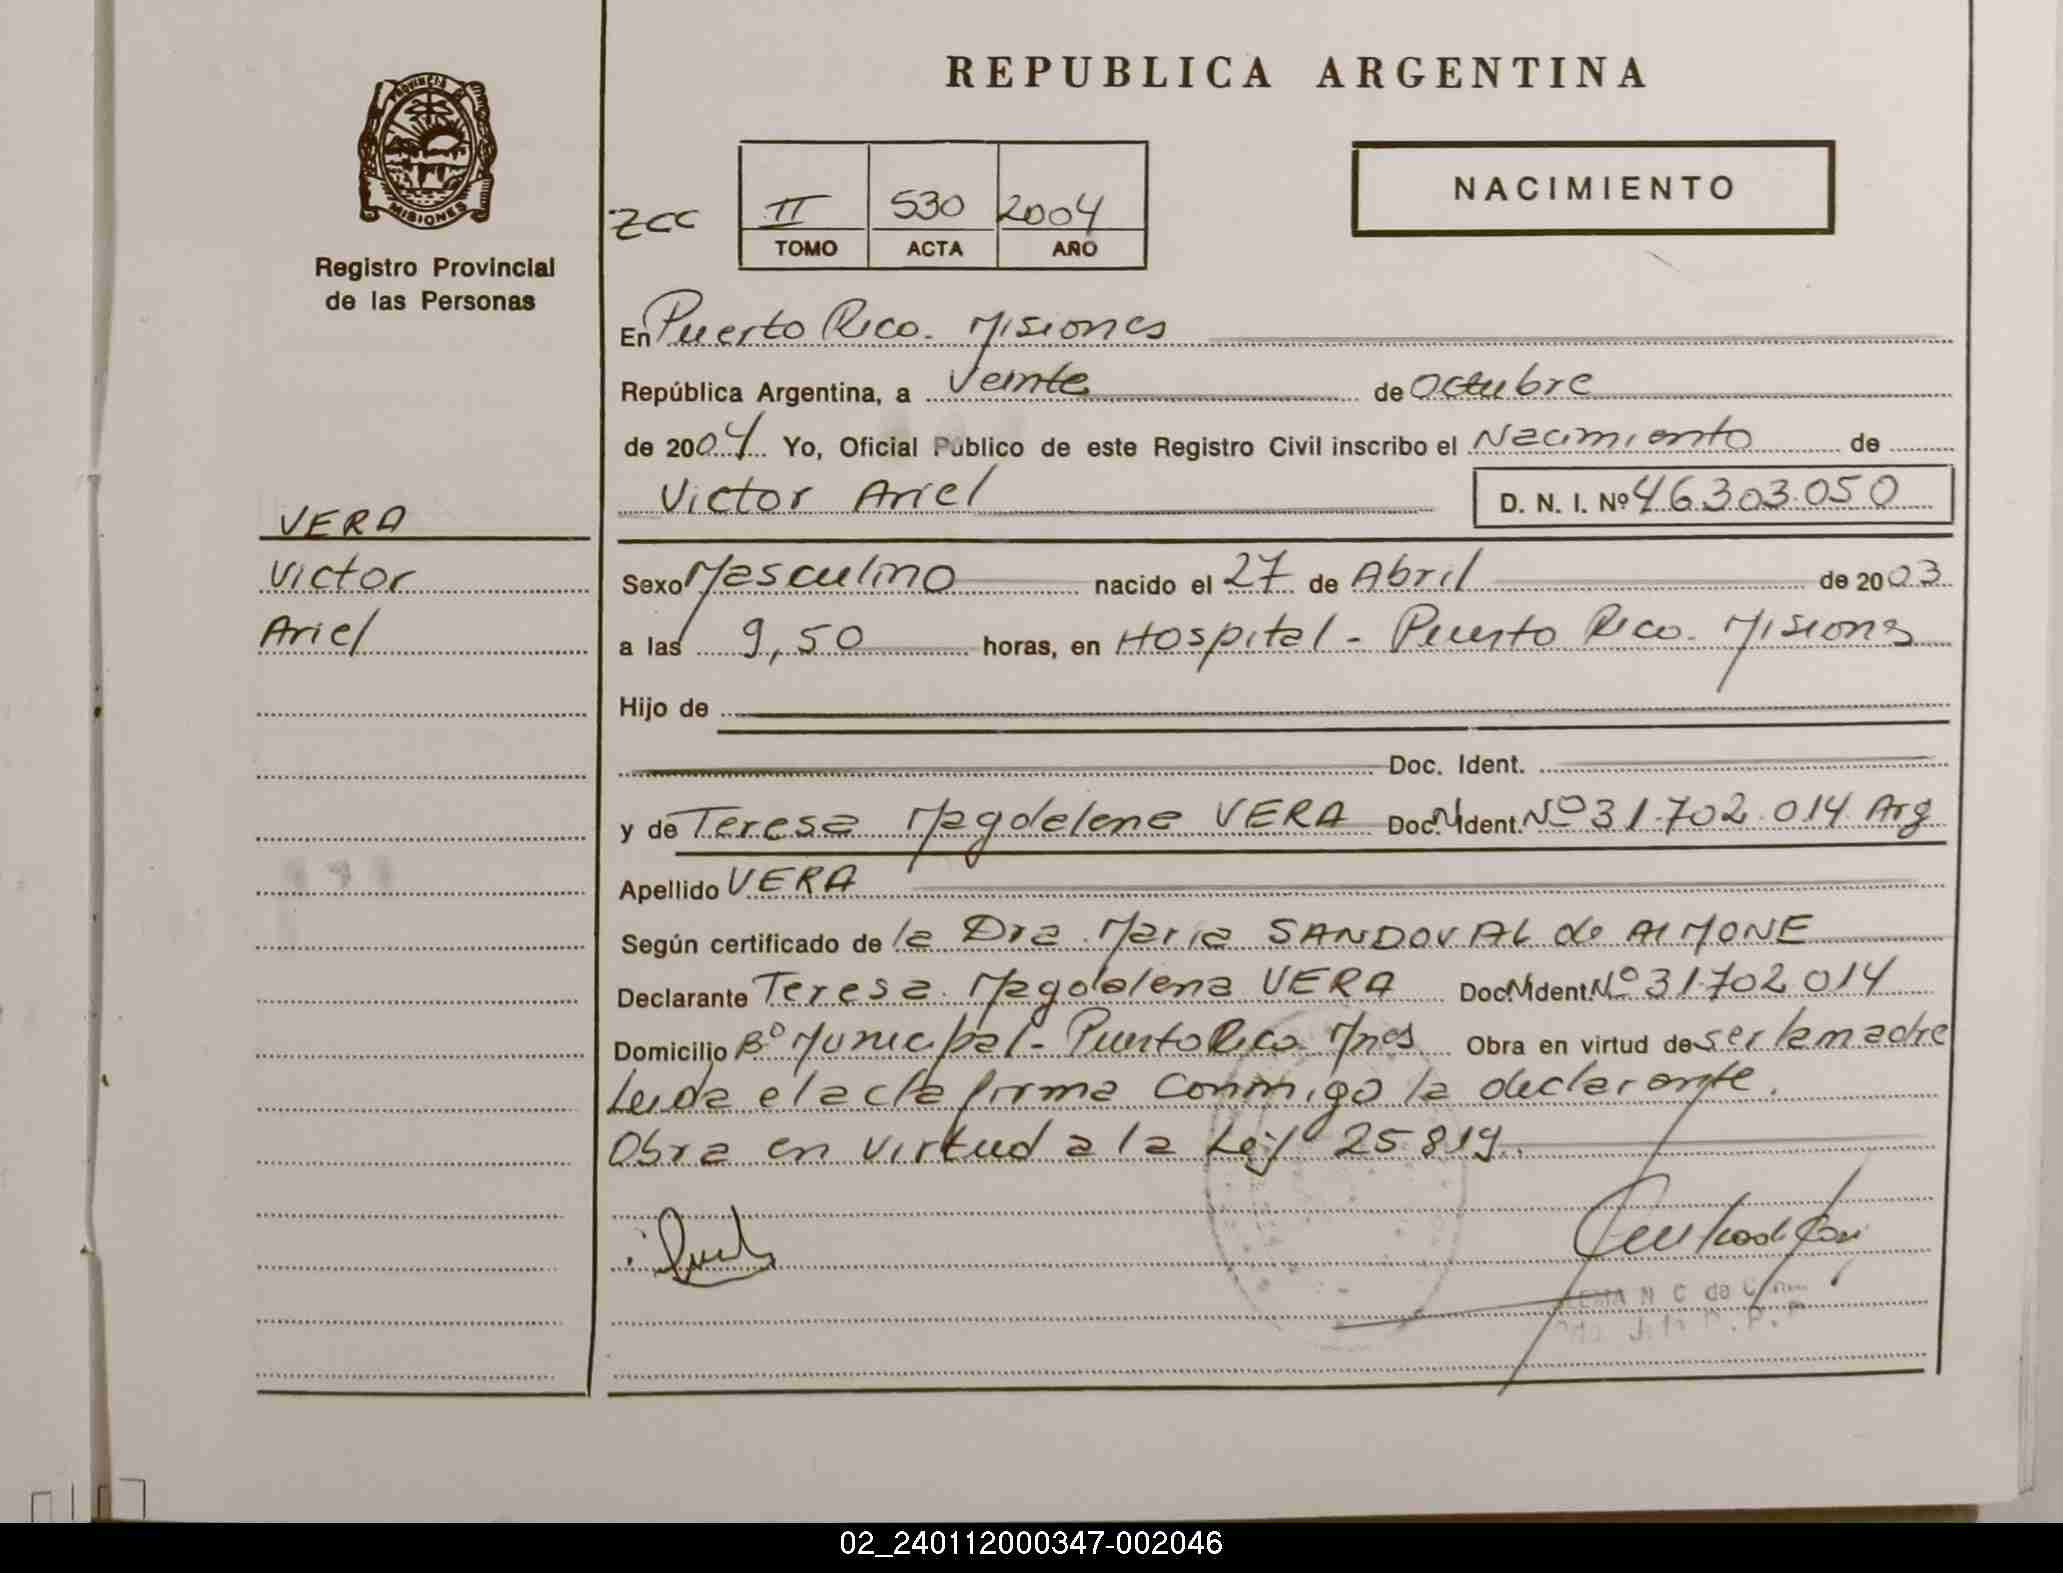 REPUBLICA ARGENTINA
PROVINCIA DE
MISIONES
Registro Provincial
de las Personas
NACIMIENTO
ZCC
II 530 2004
TOMO ACTA AÑO
En Puerto Rico. Misiones
República Argentina, a Veinte de Octubre
de 2004 Yo, Oficial Público de este Registro Civil inscribo el Nacimiento de
Victor Ariel D. N. I. Nº 46303.050
VERA
Victor
Ariel
Sexo Masculino nacido el 27 de Abril de 2003
a las 9,50 horas, en Hospital - Puerto Rico. Misiones
Hijo de
Doc. Ident.
y de Teresa Magdelena VERA Doc. Ident. Nº 31.702.014 Arg
Apellido VERA
Según certificado de la Dra. Maria SANDOVAL de AIMONE
Declarante Teresa Magdalena VERA Doc. Ident. Nº 31.702.014
Domicilio Bº Municipal - Puerto Rico. Mnes Obra en virtud de ser la madre
Leida el acta firma conmigo la declarante.
Obra en virtud a la Ley 25.819.
M C de
02_240112000347-002046